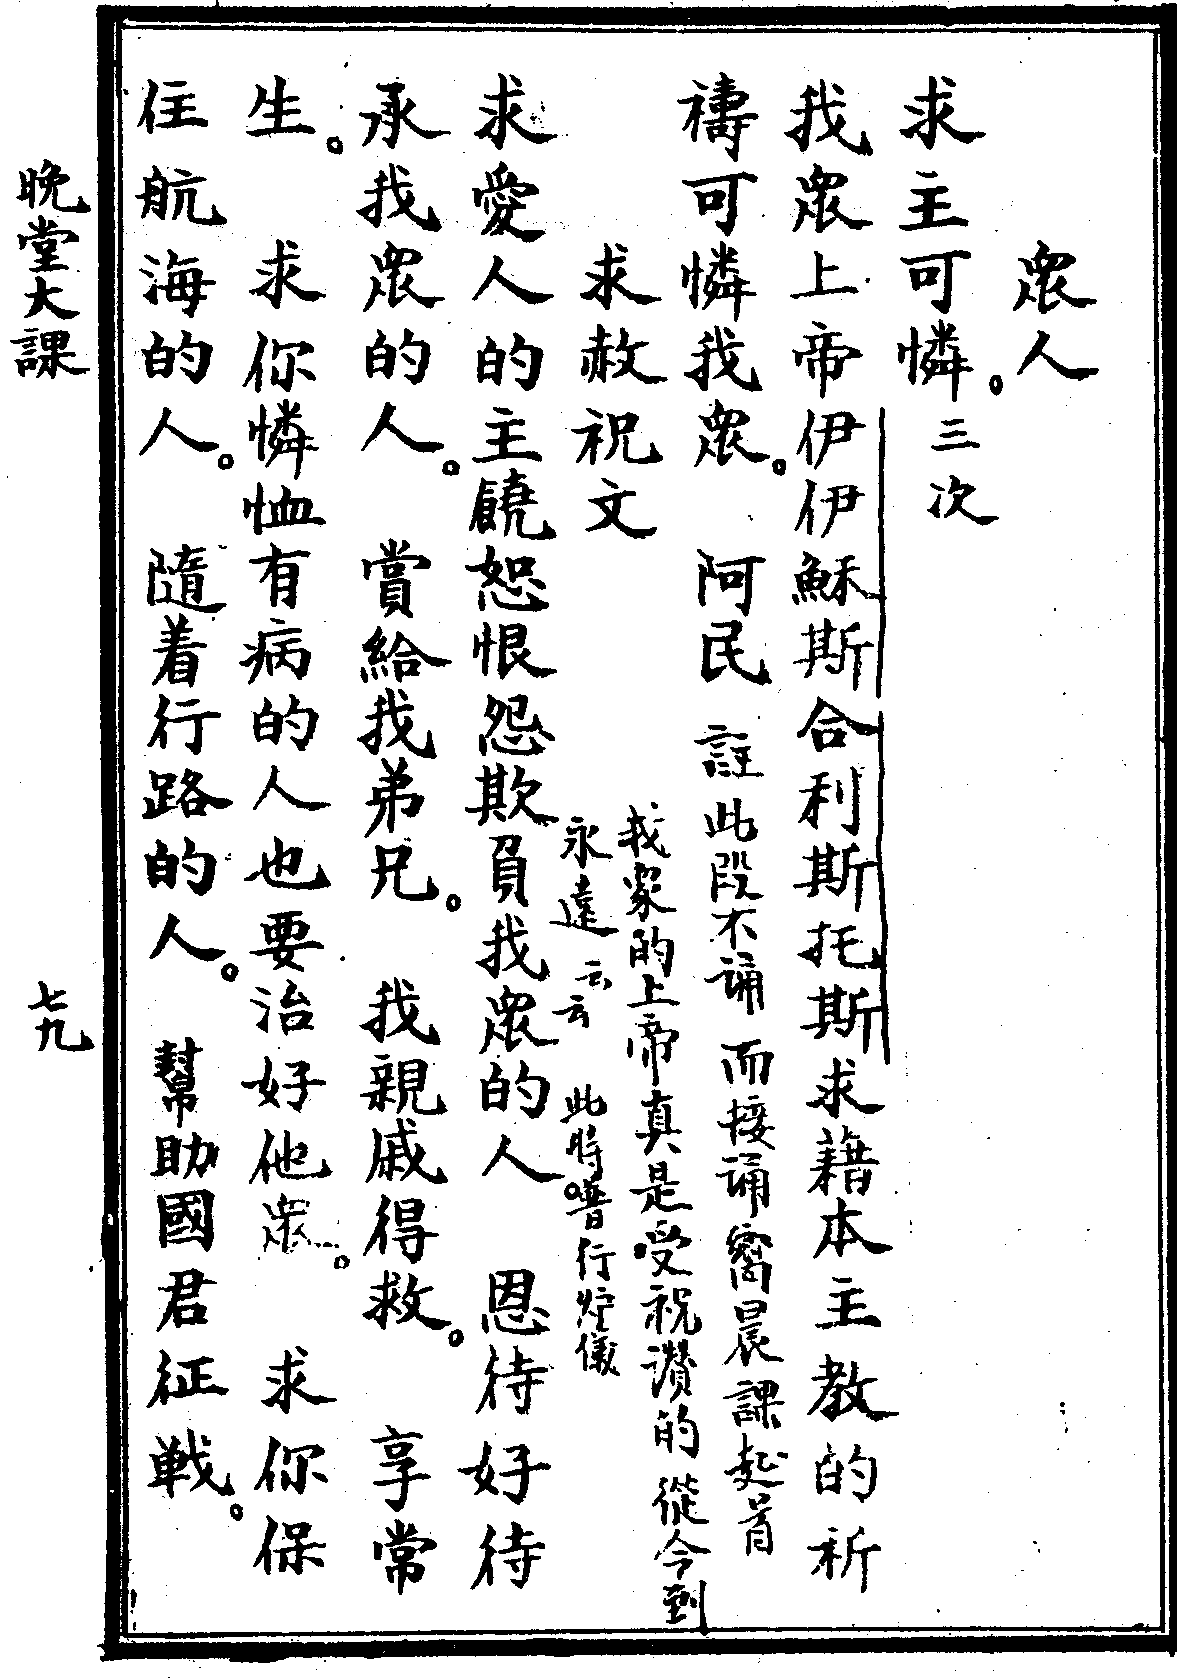 眾人
求主可憐。三次
我眾上帝伊伊穌斯合利斯托斯求藉本主教的祈
禱可憐我眾。　阿民　註此段不誦而接誦嚮晨課起首
我眾的上帝真是受祝讚的從今到
永遠云云　此時普行炉儀
求赦祝文
求愛人的主饒恕恨怨欺負我眾的人　恩待好待
承我眾的人。　賞給我弟兄。　我親戚得救。　享常
生。　求你憐恤有病的人也要治好他眾。　求你保
住航海的人。　隨着行路的人。　幫助國君征戰。
晚堂大課
七九